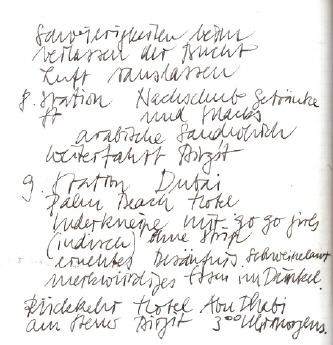 Schwierigkeiten beim
verlassen der Bucht
Luft rauslassen
8. Station Nachschub Getränke
und Snacks
arabische Sandwich
Weiterfahrt Birgit
9. Station Dubai
Palm Beach Hotel
Inderkneipe mit go go girls
(indisch) ohne Strip
Besäufnis
merkwürdiges Essen im Dunkel.
Rückkehr Hotel Abu Dhabi
am Steuer Birgit 3⁰⁰ Uhr morgens.